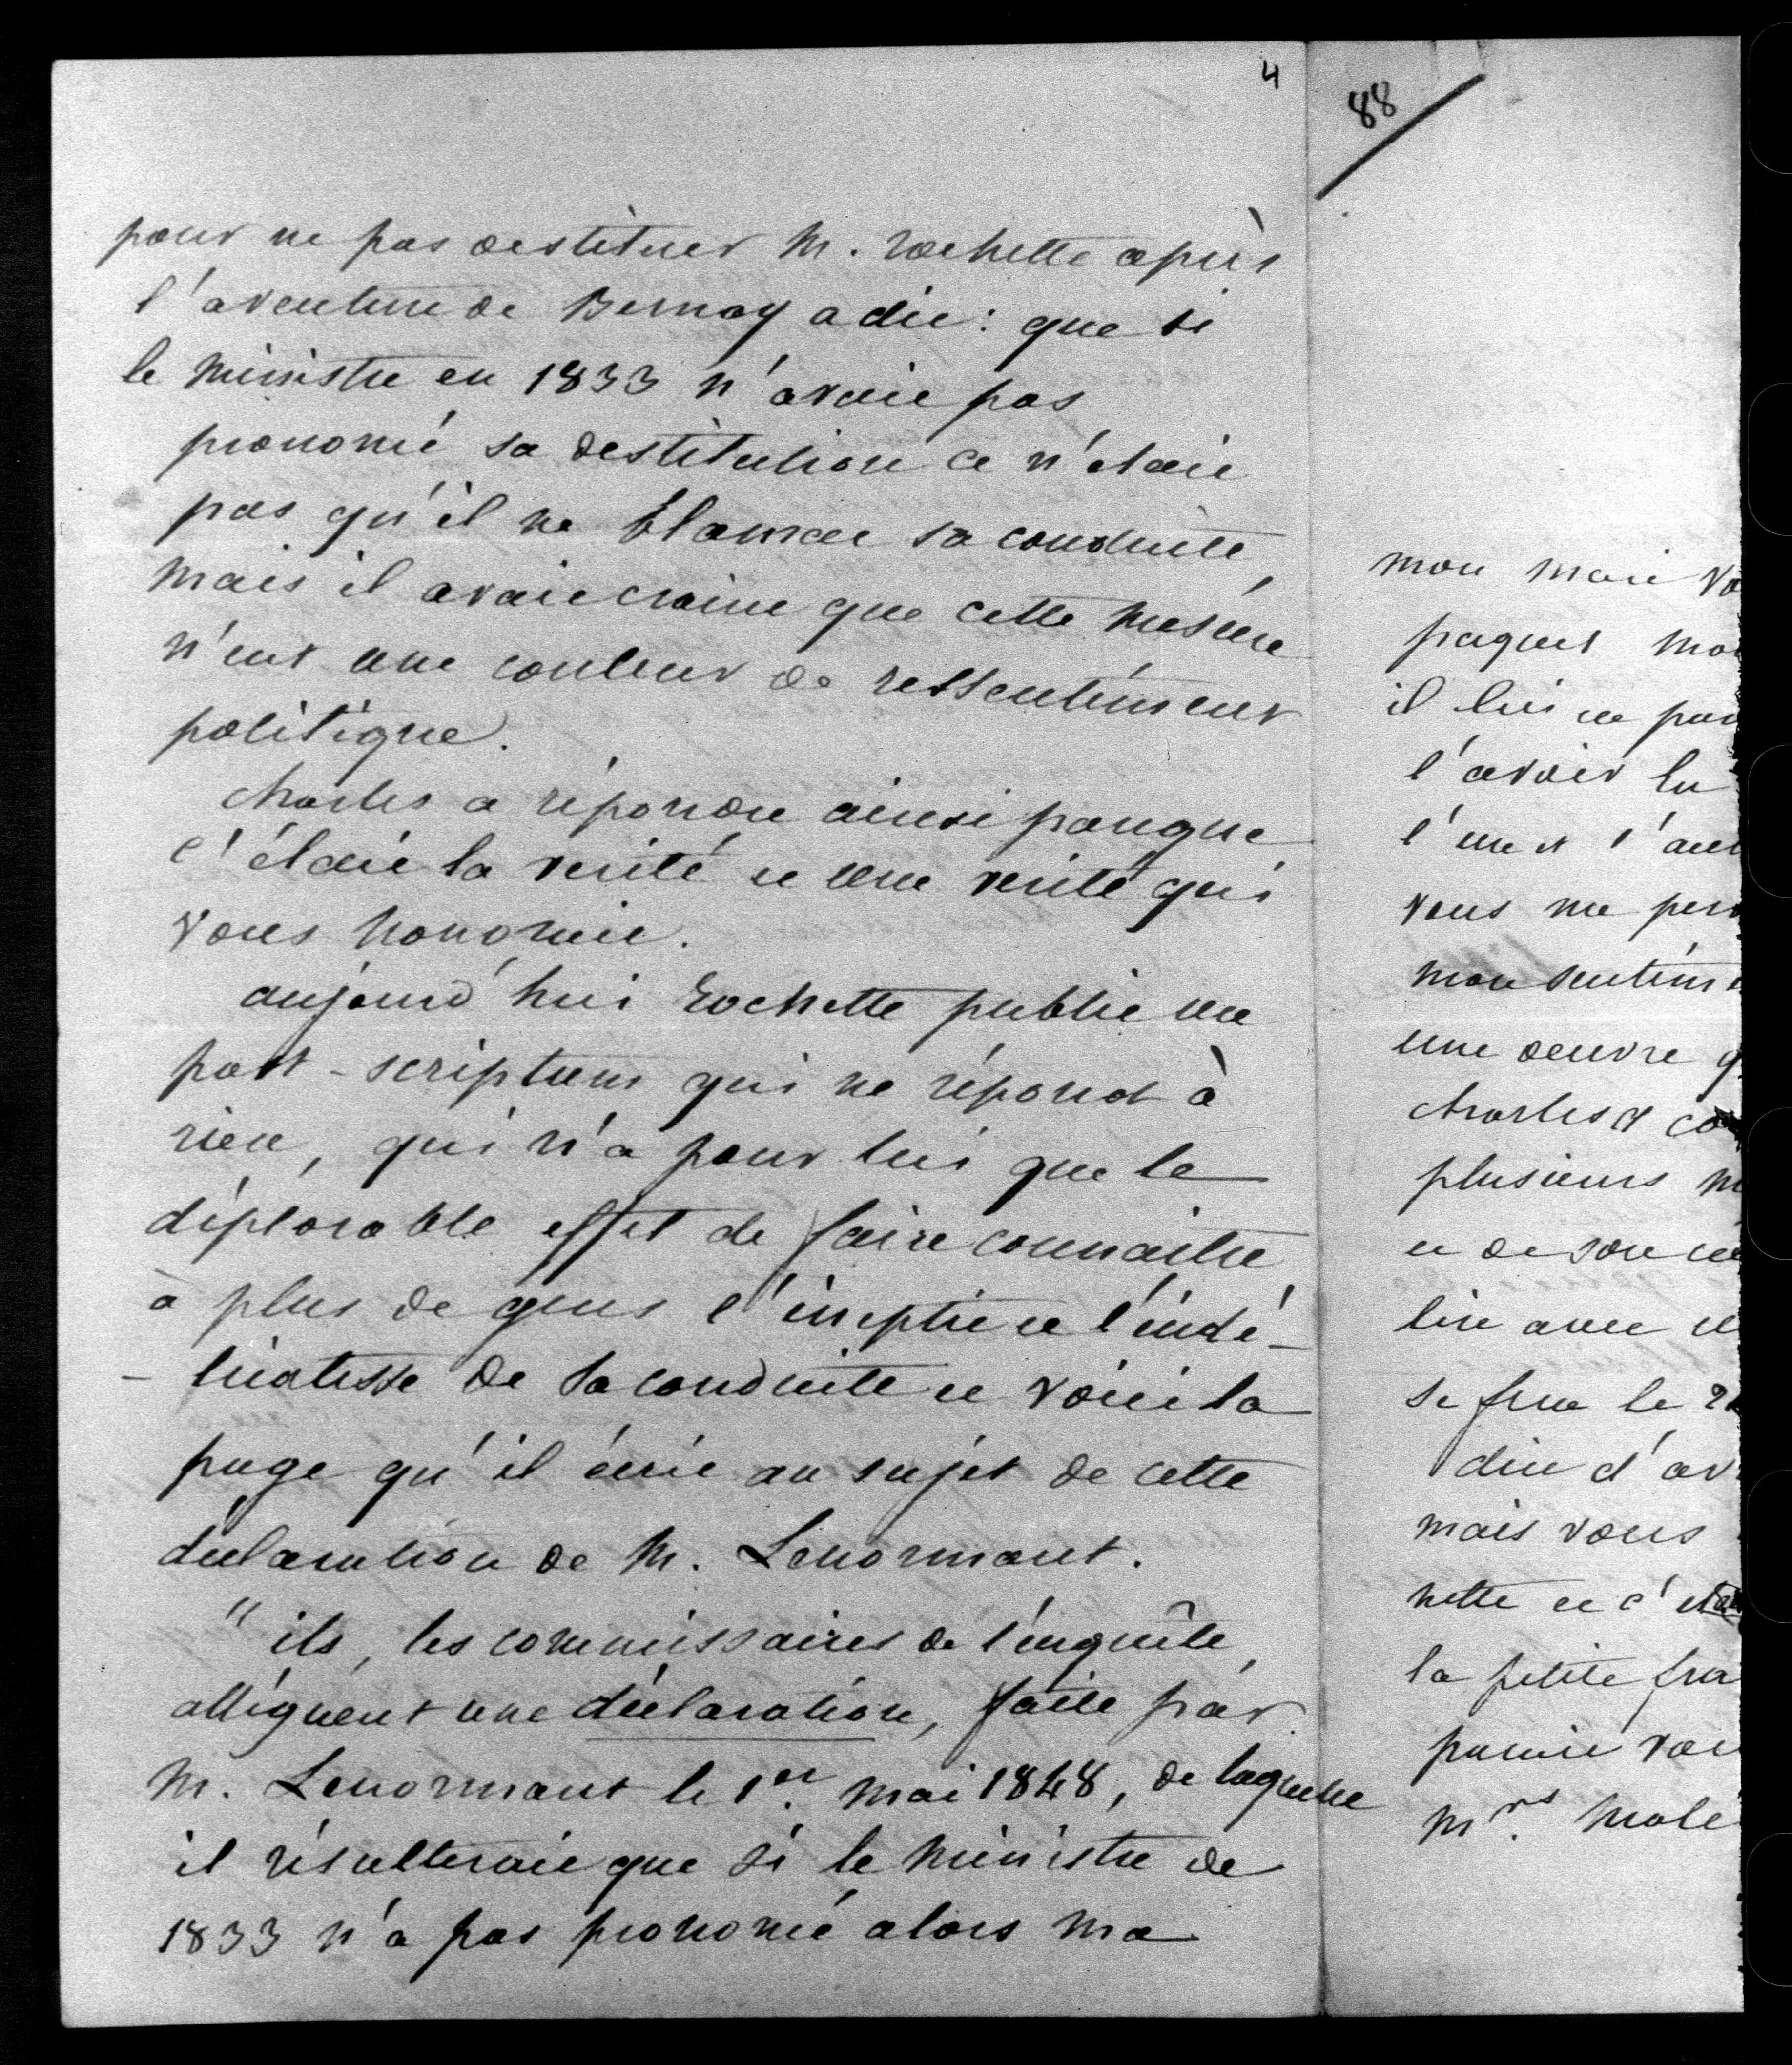 4
pour ne pas destituer M. rochette après
l'aventure de Bernay a dit : que si
le ministre en 1833 n'avait pas
prononcé sa destitution ce n'était
pas qu'il ne blamat sa conduite,
mais il avait craint que cette mesure
n'eut une couleur de ressentiment
politique.
Charles a répondu ainsi parceque
c'était la verité et une verité qui
vous honorait.
aujourd'hui rochette publie un
post-scriptum qui ne répond à
rien, qui n'a pour lui que le
déplorable effet de faire connaitre
à plus de gens l'ineptie et l'indé-
-licatesse de sa conduite et voici la
page qu'il écrit au sujet de cette
déclaration de M. Lenormant.
" ils, les commissaires de l'enquête,
allèguent une déclaration, faite par
M. Lenormant le 1er mai 1848, de laquelle
il résulterait que si le ministre de
1833 n'a pas prononcé alors ma
88
mon mari vo
paquet mo
il lui
l'avoir lu
l'un et l'au
vous me per
mon sentim
une oeuvre q
Charles et co
plusieurs m
et de son
lire avec
se fera le 2
dire d'av
mais vous
nette et c'éta
la petite fra
parmi
mrs molé